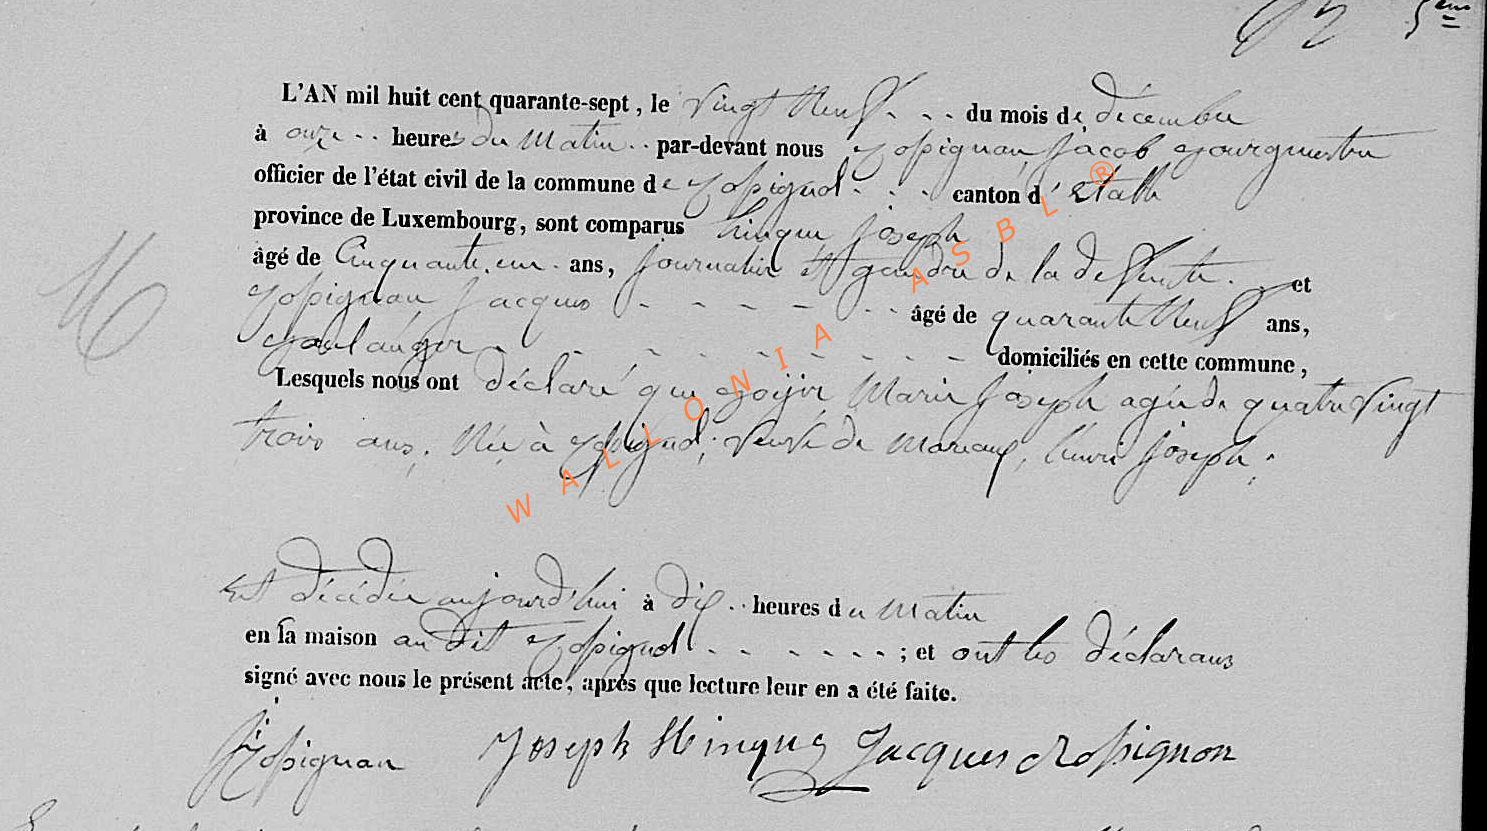 5eme
L'AN mil huit cent quarante-sept, le vingt neuf - - - du mois de décembre
à onze - - heures du matin - - par-devant nous Rossignon, Jacob Bourgmestre
officier de l'état civil de la commune de Rossignol - - - canton d'Etalle
province de Luxembourg, sont comparus hinque Joseph
âgé de Cinquante, un - ans, journalier et gendre de la defunte - et
Rossignon Jacques - - - - - - - âgé de quarante neuf ans,
Boulanger - - - - - - - - - - domiciliés en cette commune,
Lesquels nous ont déclaré que Marie Joseph agée de quatre vingt
trois ans, Née à Rossignol, veuve de henri Joseph,
Est décédée aujourd'hui à dix - - heures du matin
en sa maison au dit Rossignol - - - - - - - ; et ont les déclarans
signé avec nous le présent acte, après que lecture leur en a été faite.
J. Rossignon Joseph Hinque Jacques Rossignon
WALLONIA ASBL ®